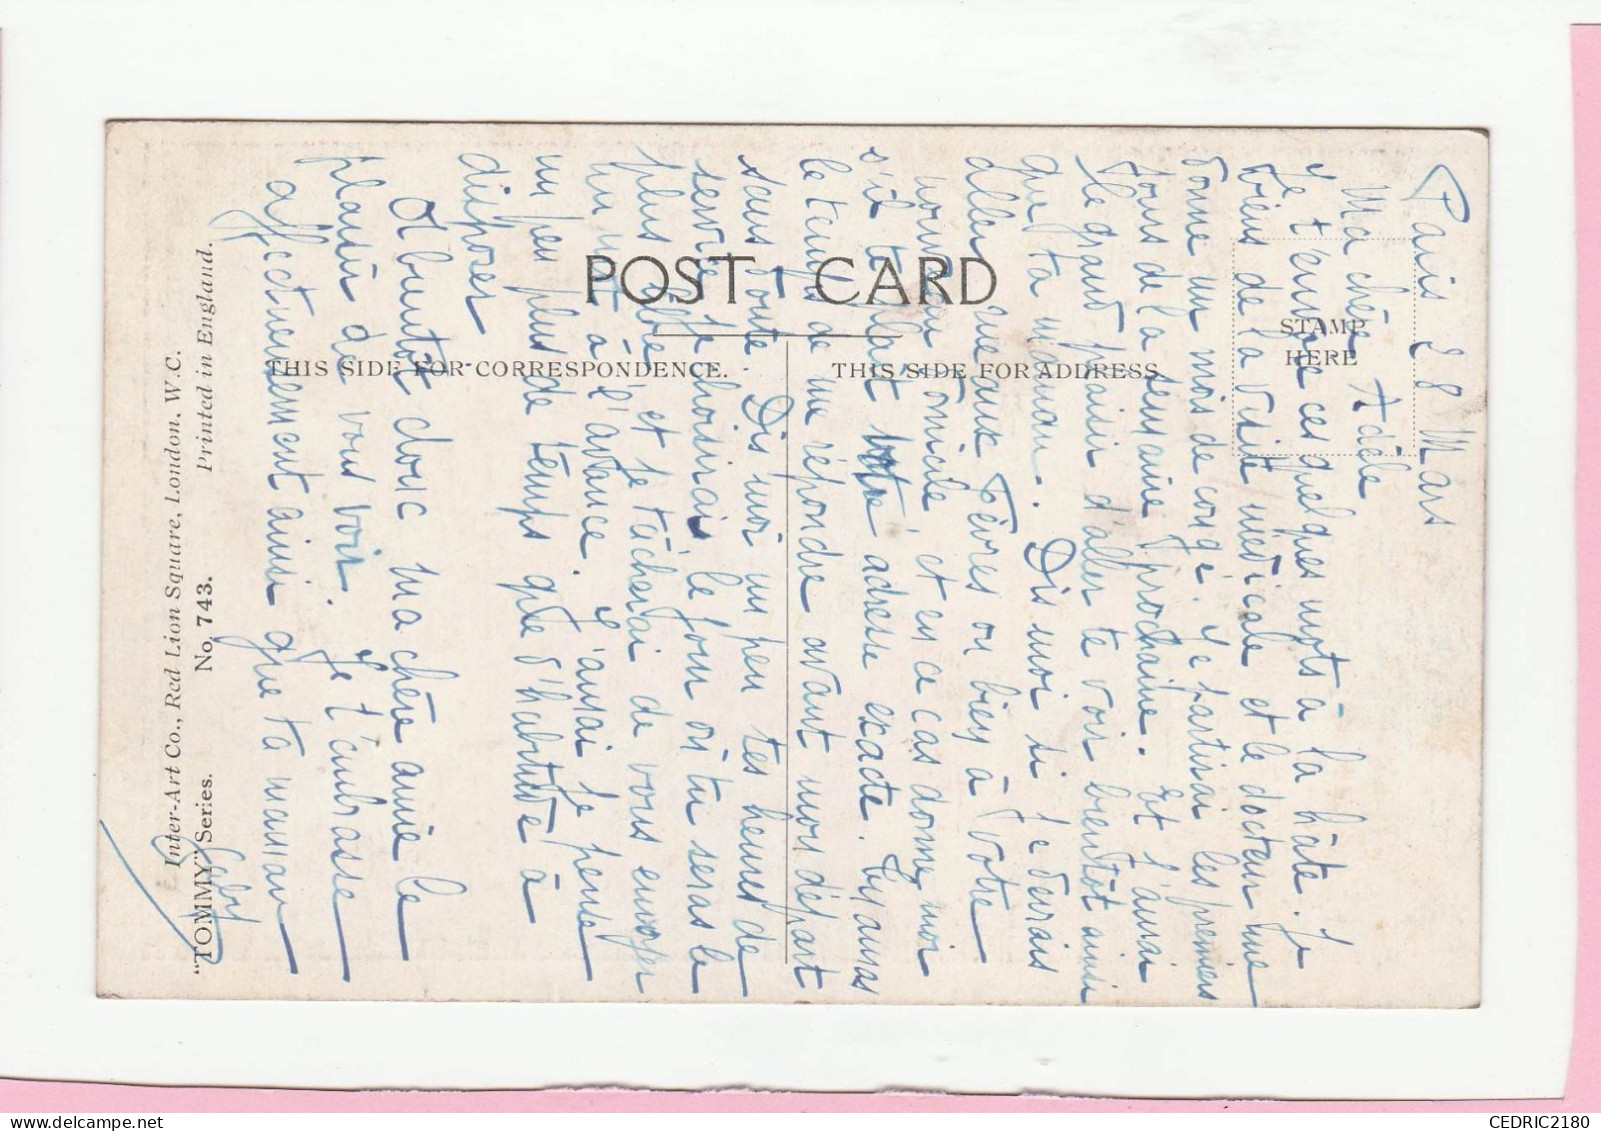 POST CARD
THIS SIDE FOR CORRESPONDENCE.
THIS SIDE FOR ADDRESS
STAMP
HERE
Inter-Art Co., Red Lion Square, London, W.C.
"TOMMY" Series. No. 743. Printed in England.
Paris 28 Mars
Ma chère Adèle
Je t'envoie ces quelques mots à la hâte. Je
viens de la visite médicale et le docteur me
donne un mois de congé. Je partirai les premiers
jours de la semaine prochaine. Et j'aurai
le grand plaisir d'aller te voir bientôt ainsi
que ta maman. Dis moi si je devrais
aller rue aux Fèvres ou bien à votre
nouveau domicile et en ce cas donne moi
s'il te plait votre adresse exacte. Tu auras
le temps de me répondre avant mon départ
sans doute. Dis moi un peu tes heures de
service je choisirai le jour où tu seras le
plus libre et je tâcherai de vous envoyer
un mot à l'avance. J'aurai je pense
un peu plus de temps que d'habitude à
disposer
A bientôt donc ma chère amie le
plaisir de vous voir. Je t'embrasse
affectueusement ainsi que ta maman
Gaby
CEDRIC2180